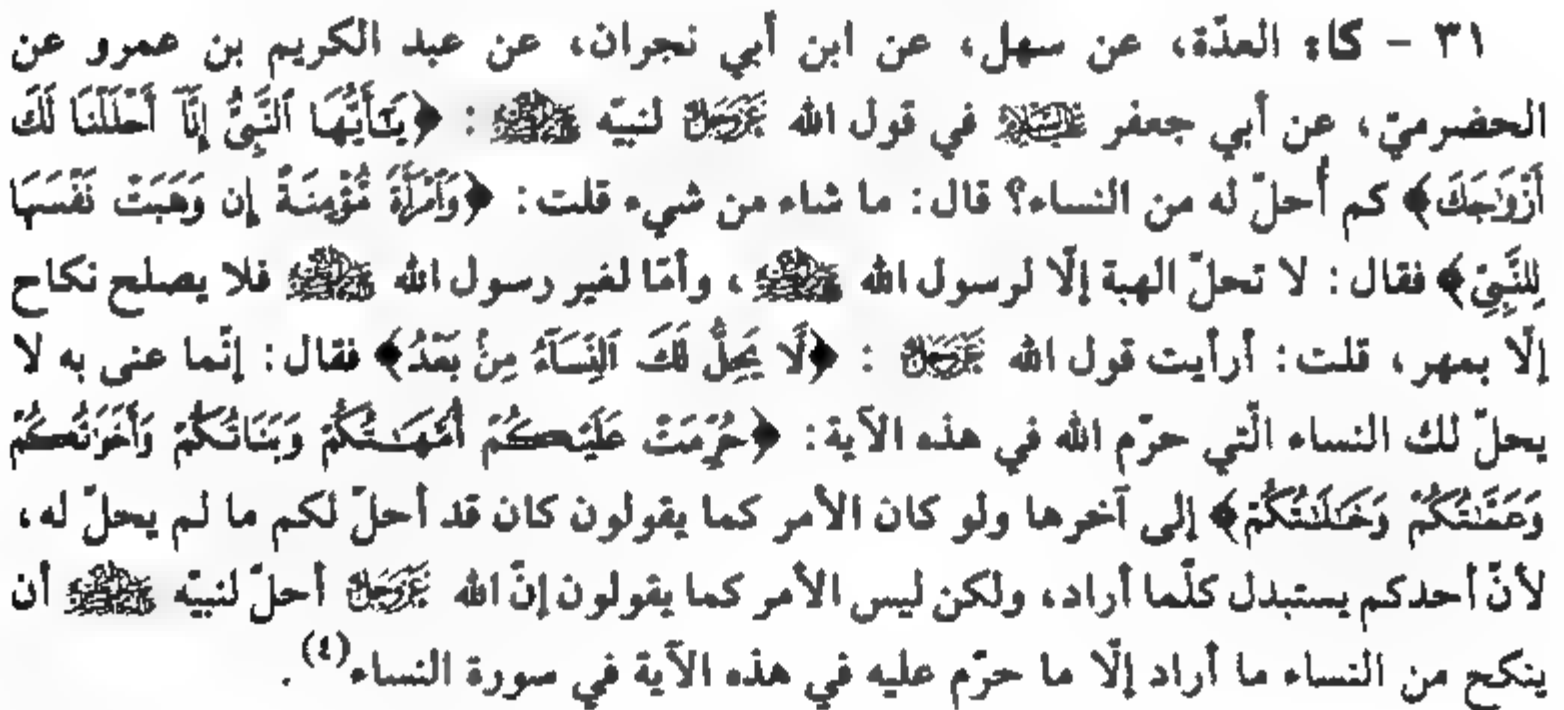 ٣١ - كا: العدّة، عن سهل، عن ابن أبي نجران، عن عبد الكريم بن عمرو عن
الحضرميّ، عن أبي جعفر عليه السلام في قول الله عز وجل لنبيّه صلى الله عليه وآله : ﴿يَٰٓأَيُّهَا ٱلنَّبِىُّ إِنَّآ أَحْلَلْنَا لَكَ
أَزْوَٰجَكَ﴾ كم أُحلّ له من النساء؟ قال: ما شاء من شيء قلت: ﴿وَٱمْرَأَةً مُّؤْمِنَةً إِن وَهَبَتْ نَفْسَهَا
لِلنَّبِىِّ﴾ فقال: لا تحلّ الهبة إلّا لرسول الله صلى الله عليه وآله ، وأمّا لغير رسول الله صلى الله عليه وآله فلا يصلح نكاح
إلّا بمهر، قلت: أرأيت قول الله عز وجل : ﴿لَّا يَحِلُّ لَكَ ٱلنِّسَآءُ مِنۢ بَعْدُ﴾ فقال: إنّما عنى به لا
يحلّ لك النساء الّتي حرّم الله في هذه الآية: ﴿حُرِّمَتْ عَلَيْكُمْ أُمَّهَٰتُكُمْ وَبَنَاتُكُمْ وَأَخَوَٰتُكُمْ
وَعَمَّٰتُكُمْ وَخَٰلَٰتُكُمْ﴾ إلى آخرها ولو كان الأمر كما يقولون كان قد أحلّ لكم ما لم يحلّ له،
لأنّ أحدكم يستبدل كلّما أراد، ولكن ليس الأمر كما يقولون إنّ الله عز وجل أحلّ لنبيّه صلى الله عليه وآله أن
ينكح من النساء ما أراد إلّا ما حرّم عليه في هذه الآية في سورة النساء(٤) .